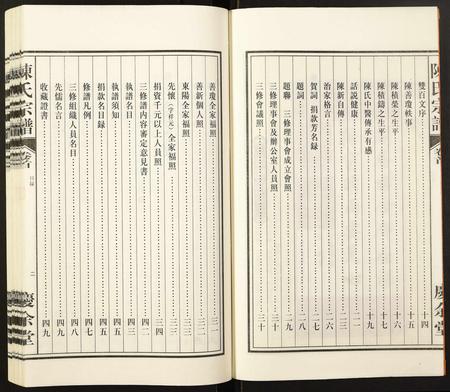 陳氏宗譜
慶余堂
雙百文序……十四
陳善瓊軼事……十五
陳積榮之生平……十六
陳積鑄之生平……十七
陳氏中醫傳承有感……十九
話説健康……二一
陳新自傳……二二
治家格言……二三
賀詞 捐款芳名録……二七
題詞……二八
題聯 三修理事會成立會照……二九
三修理事會及辦公室人員照……三十
三修會議照……三十
善瓊全家福照……三一
善新個人照……三二
東陽全家福照……三三
先懷(字祥元)全家福照……三三
捐資千元以上人員照……三四
三修譜内容審定意見書……四二
執譜名目……四三
執譜須知……四五
捐款名目録……四五
修譜凡例……四七
三修組織人員名目……四八
先儒名言……四九
收藏證書……四九
陳氏宗譜
目録
二
慶余堂